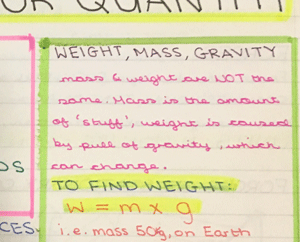 OR QUANTITY
WEIGHT, MASS, GRAVITY
mass & weight are NOT the
same. Mass is the amount
of 'stuff', weight is caused
by pull of gravity, which
can change.
TO FIND WEIGHT:
W = m x g
i.e. mass 50kg, on Earth